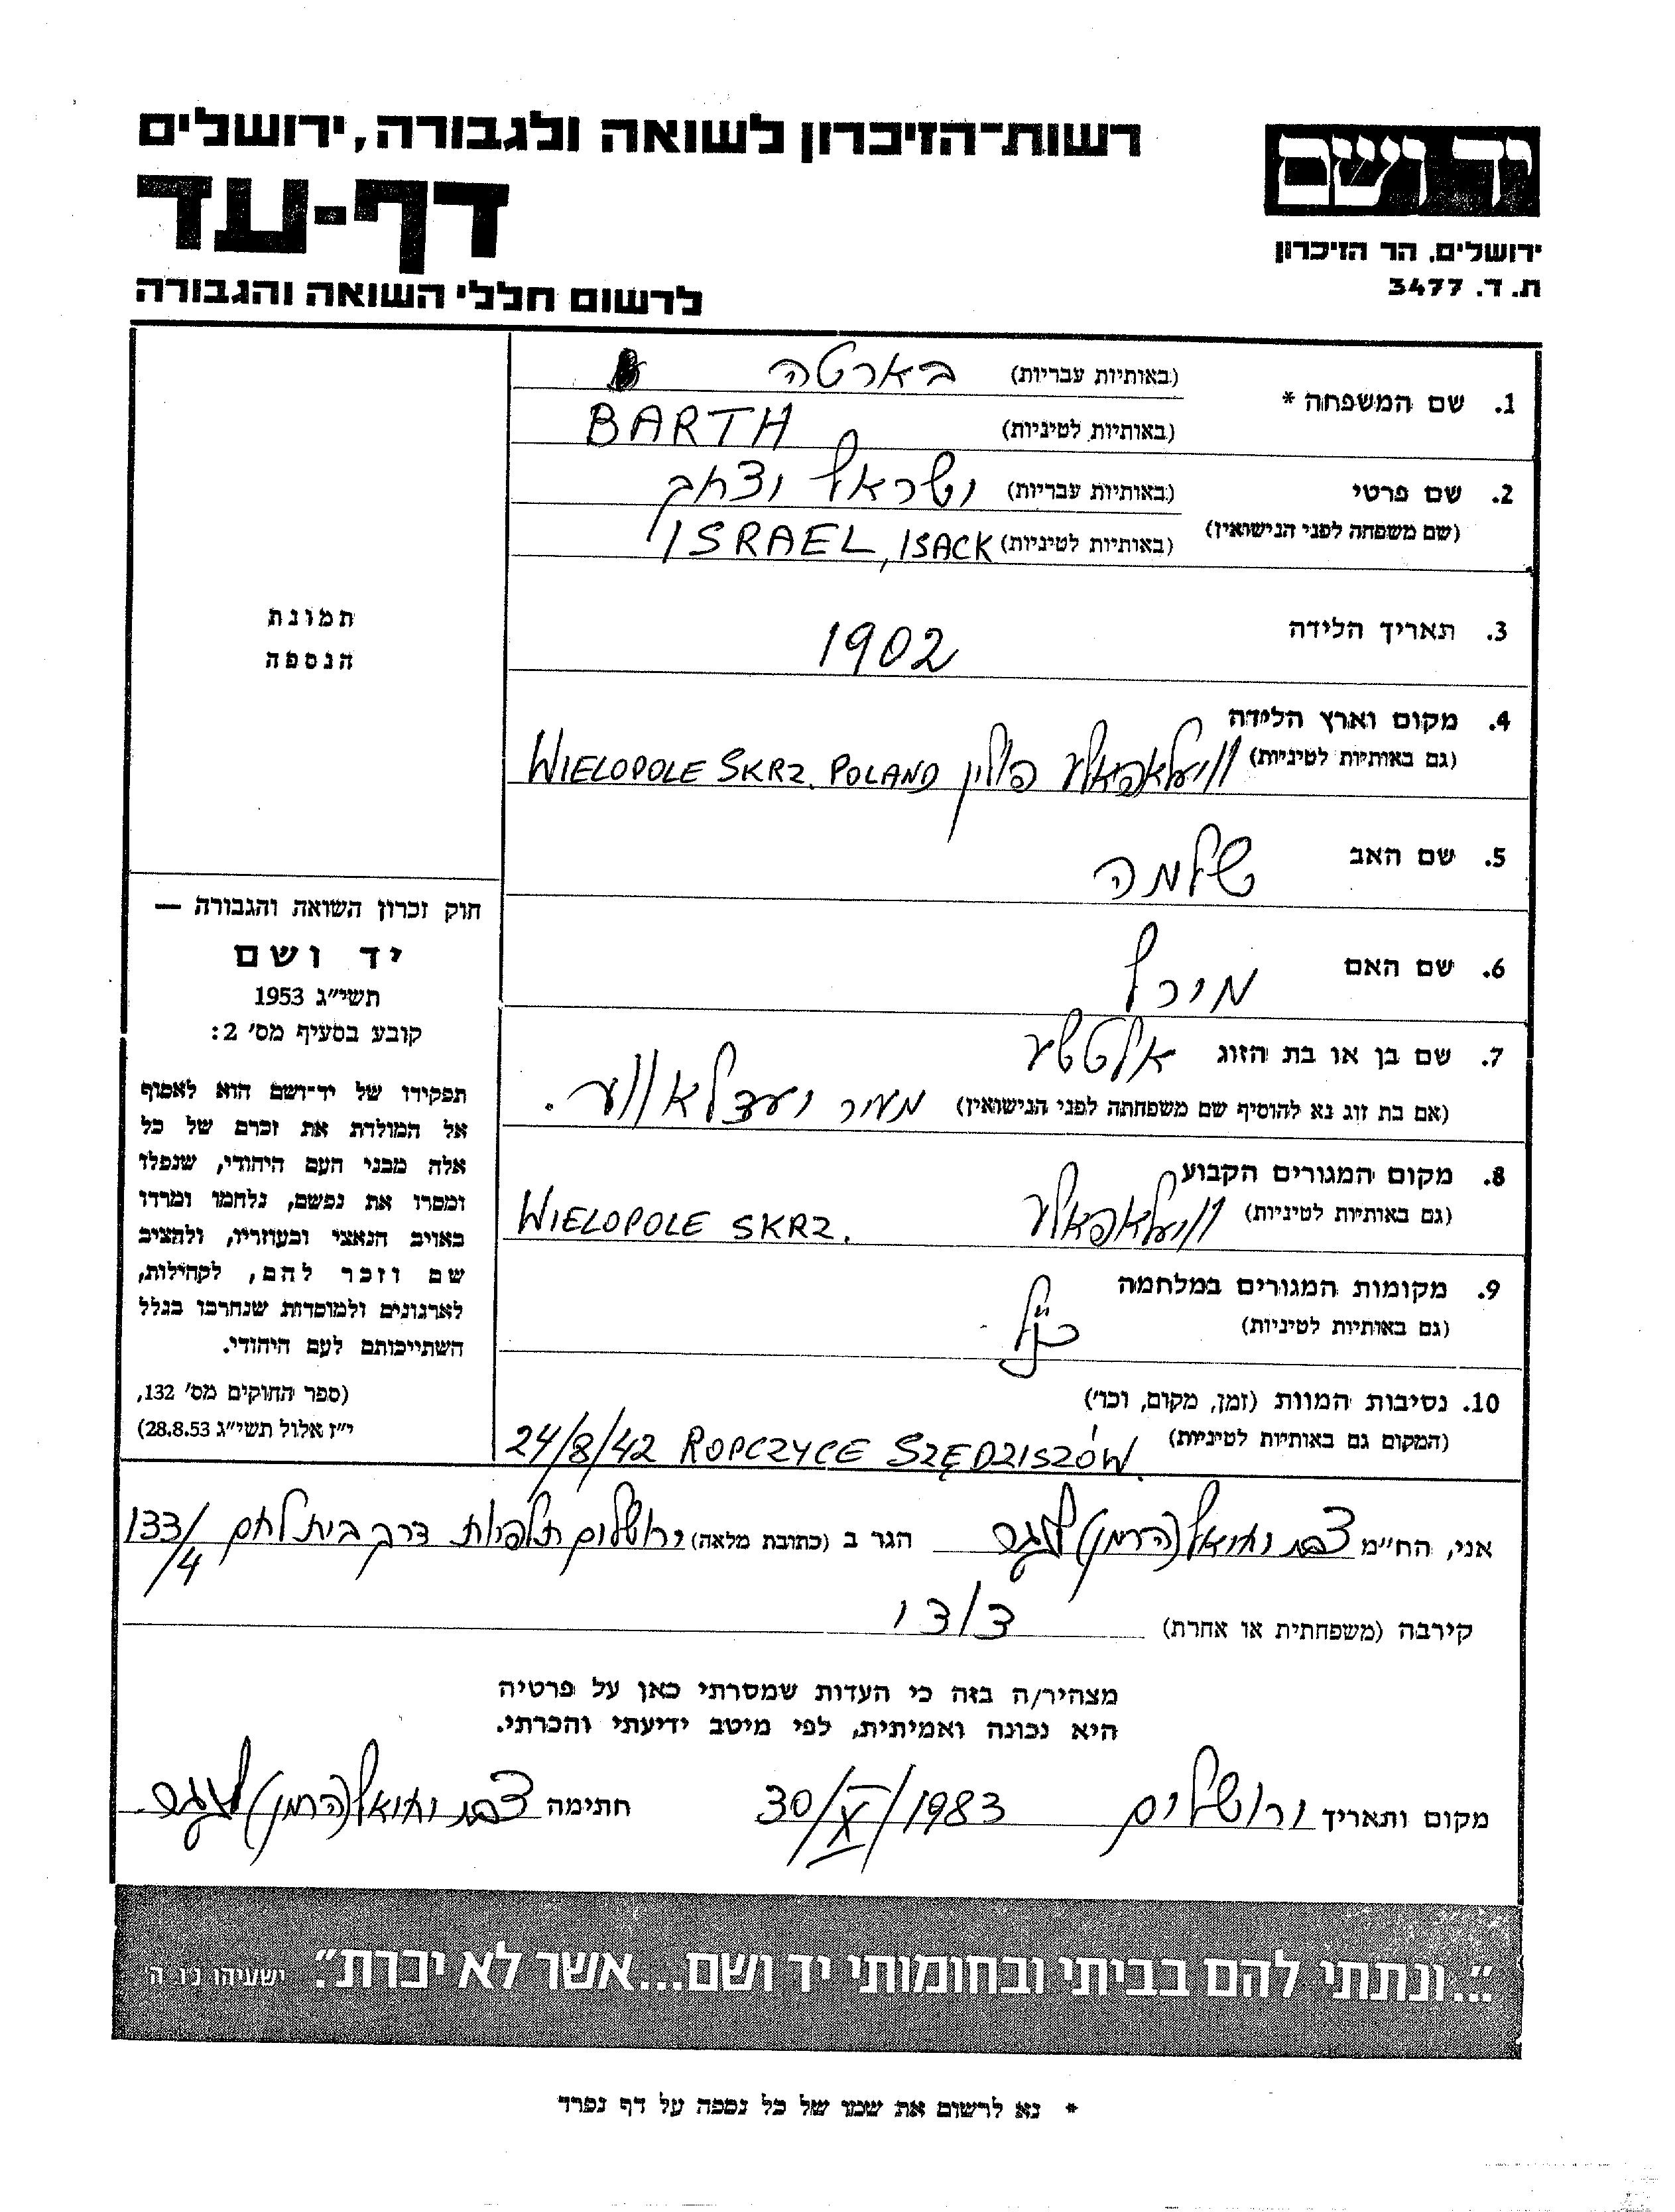 רשות-הזיכרון לשואה ולגבורה, ירושלים
דף-עד
לרשום חללי השואה והגבורה
יד ושם
ירושלים, הר הזיכרון
ת. ד. 3477
1. שם המשפחה *
(באותיות עבריות) בארטה
(באותיות לטיניות) BARTH
2. שם פרטי (באותיות עבריות) ישראל יצחק
(שם משפחה לפני הנישואין) (באותיות לטיניות) ISRAEL, ISACK
3. תאריך הלידה 1902
4. מקום וארץ הלידה
(גם באותיות לטיניות) וויעלאפאלע פולין WIELOPOLE SKRZ. POLAND
5. שם האב שלמה
6. שם האם מירל
7. שם בן או בת הזוג אלטשע
(אם בת זוג נא להוסיף שם משפחתה לפני הנישואין)
8. מקום המגורים הקבוע
(גם באותיות לטיניות) וויעלאפאלע WIELOPOLE SKRZ.
9. מקומות המגורים במלחמה
(גם באותיות לטיניות) כנ"ל
10. נסיבות המוות (זמן, מקום, וכו')
(המקום גם באותיות לטיניות) 24/8/42 ROPCZYCE SZĘDZISZÓW.
תמונת
הנספה
חוק זכרון השואה והגבורה —
יד ושם
תשי"ג 1953
קובע בסעיף מס' 2:
תפקידו של יד-ושם הוא לאסוף
אל המולדת את זכרם של כל
אלה מבני העם היהודי, שנפלו
ומסרו את נפשם, נלחמו ומרדו
באויב הנאצי ובעוזריו, ולהציב
שם וזכר להם, לקהילות,
לארגונים ולמוסדות שנחרבו בגלל
השתייכותם לעם היהודי.
(ספר החוקים מס' 132,
י"ז אלול תשי"ג 28.8.53)
אני, הח"מ הגר ב (כתובת מלאה) ירושלים תלפיות דרך בית לחם 133/4
קירבה (משפחתית או אחרת)
מצהיר/ה בזה כי העדות שמסרתי כאן על פרטיה
היא נכונה ואמיתית, לפי מיטב ידיעתי והכרתי.
מקום ותאריך ירושלים 30/X/1983 חתימה
"...ונתתי להם בביתי ובחומותי יד ושם...אשר לא יכרת". ישעיהו נ"ו ה'
* נא לרשום את שמו של כל נספה על דף נפרד